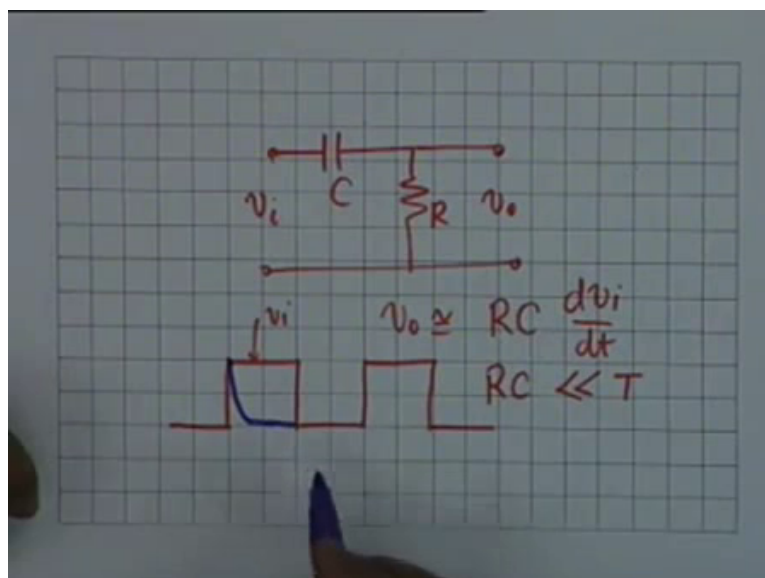 C
vᵢ
R
v₀
vi
v₀ ≅ RC dvi/dt
RC << T